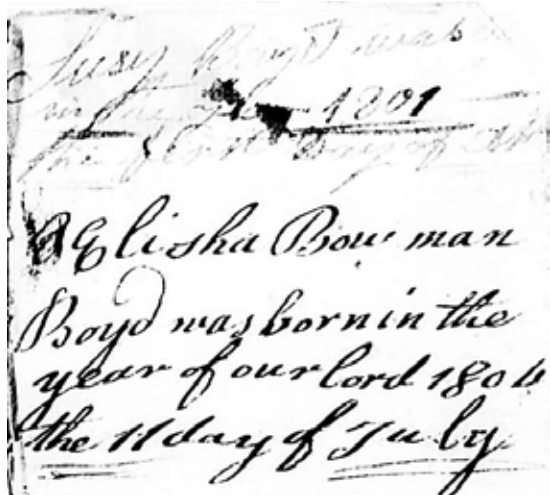 Susy Boyd was
in the 1801
the first Day of
Elisha Bowman
Boyd was born in the
year of our lord 1804
the 11 day of July